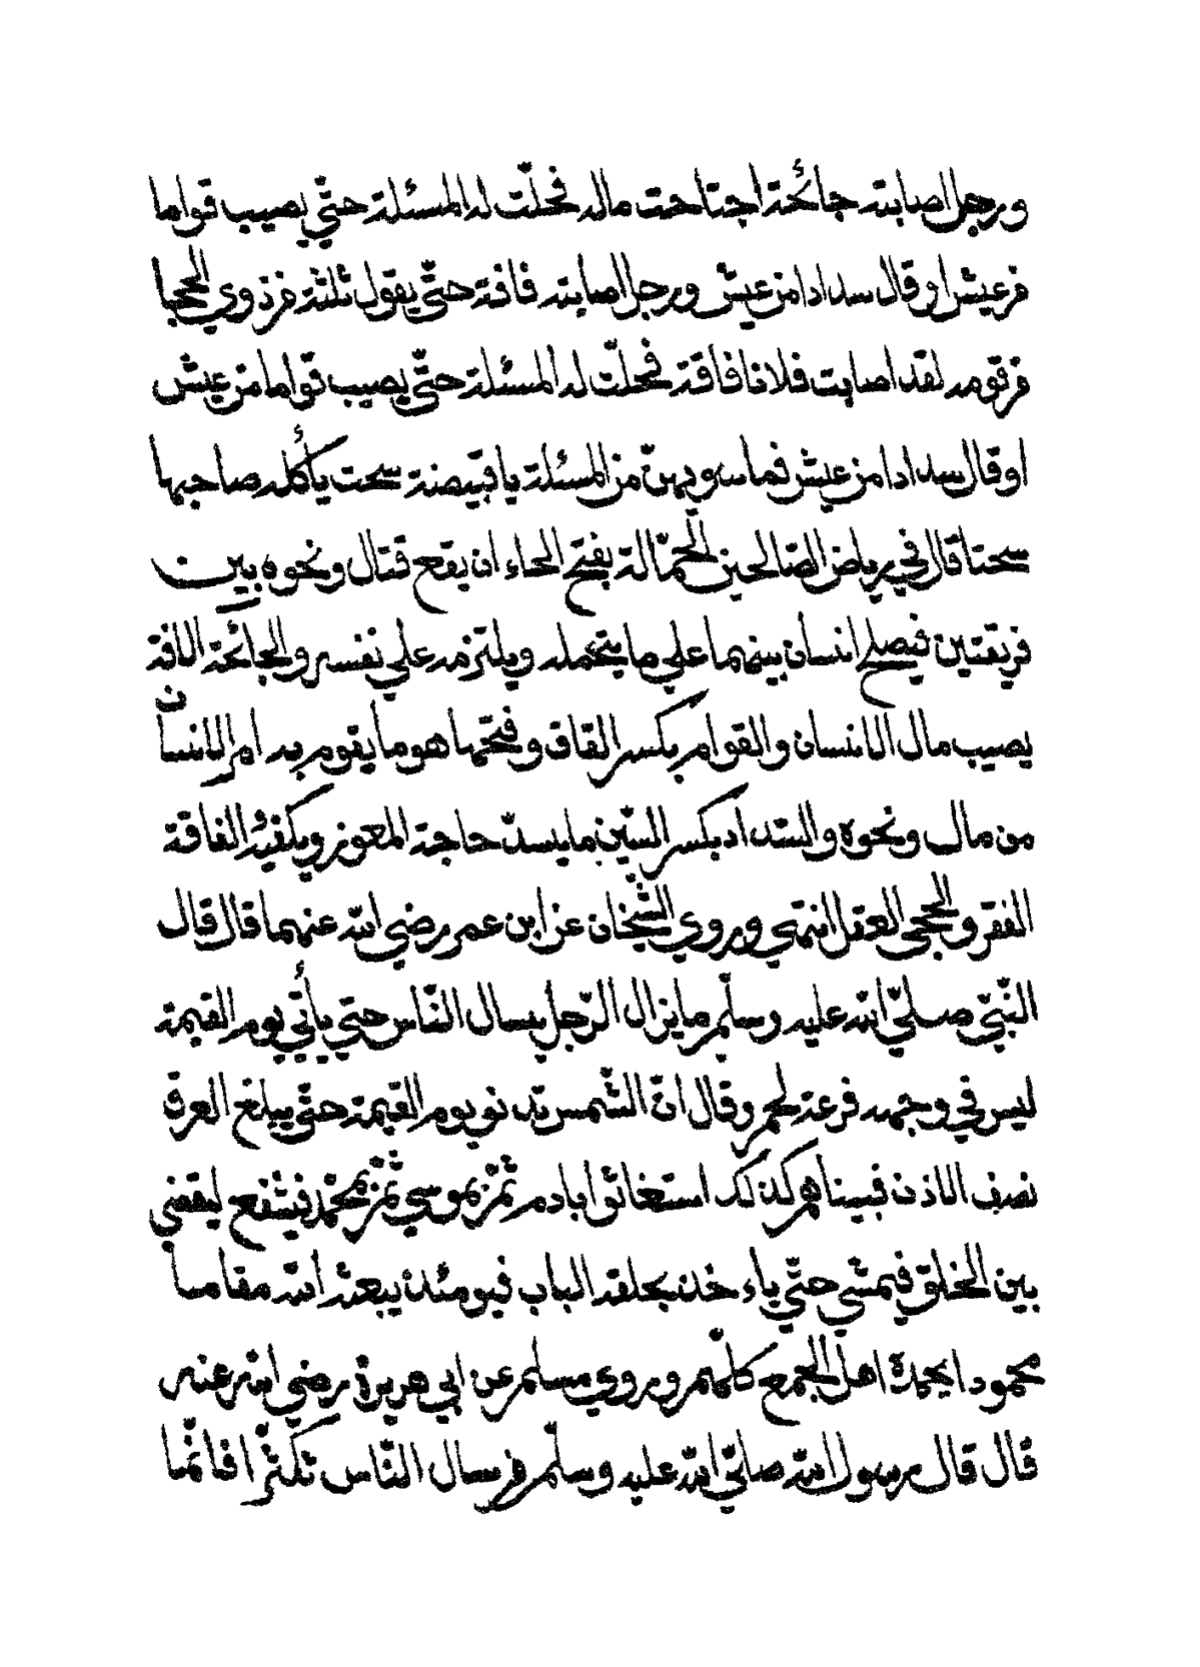 ورجل اصابته جائحة اجتاحت ماله فحلّت له المسئلة حتّي يصيب قواما
من عيش او قال سدادا من عيش ورجل اصابته فاقة حتّي يقول ثلثة من ذوي الحجا
من قومه لقد اصابت فلانا فاقة فحلّت له المسئلة حتّي يصيب قواما من عيش
او قال سدادا من عيش فما سويهنّ من المسئلة يا قبيصة سحت يأكله صاحبها
سحتا قال في رياض الصّالحين الحمّالة بفتح الحاء ان يقح قتال ونحوه بين
فريقتين فيصلح انسان بينهما علي ما يتحمله ويلتزمه علي نفسه والجائحة الافة
يصيب مال الانسان والقوام بكسر القاق وفتحها هو ما يقوم به امر الانسان
من مال ونحوه والسّداد بكسر السّين ما يسدّ حاجة المعوز ويكفيه والفاقة
الفقر والحجى العقل انتهي وروي الشّيخان عن ابن عمر رضي الله عنهما قال قال
النّبيّ صلّي الله عليه وسلّم ما يزال الرّجل يسال النّاس حتي يأتي يوم القيمة
ليس في وجهه فرعة لحم وقال انّ الشّمس تدنو يوم القيمة حتّي يبلغ العرق
نصف الاذن فبيناهم كذلك استغاثوا بادم ثمّ بموسي ثمّ بمحمّد فيشفع ليقضي
بين الخلق فيمشي حتّي ياءخذ بحلقة الباب فيومئذ يبعثه الله مقاما
محمودا يحمده اهل الجمع كلّهم وروي مسلم عن ابي هريرة رضي الله عنه
قال قال رسول الله صلّي الله عليه وسلّم من سال النّاس تكثّرا فانّما